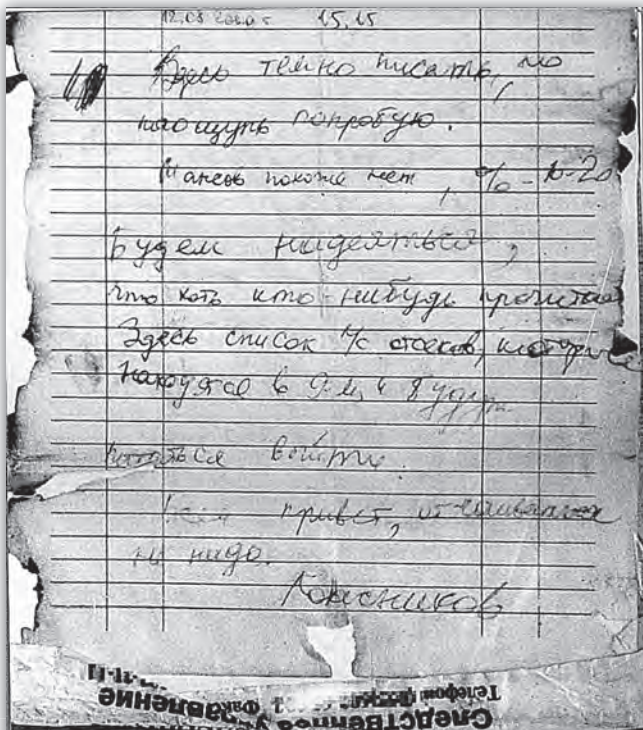 12.08.2000 г 15.15
Здесь темно писать, но
наощупь попробую.
Шансов похоже нет, % - 10-20
Будем надеяться,
что хоть кто-нибудь прочитает
Здесь список л/с отсеков, которые
находятся в 9-м и 8 будут
пытаться выйти.
Всем привет, отчаиваться
не надо.
Колесников
Следственное управление
Телефон Факс